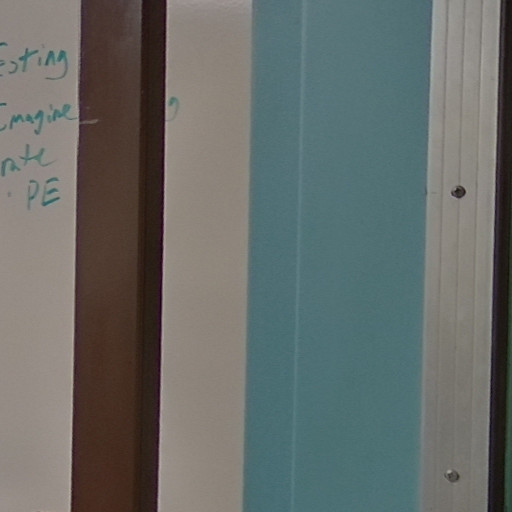 esting
Emagine
rate
PE